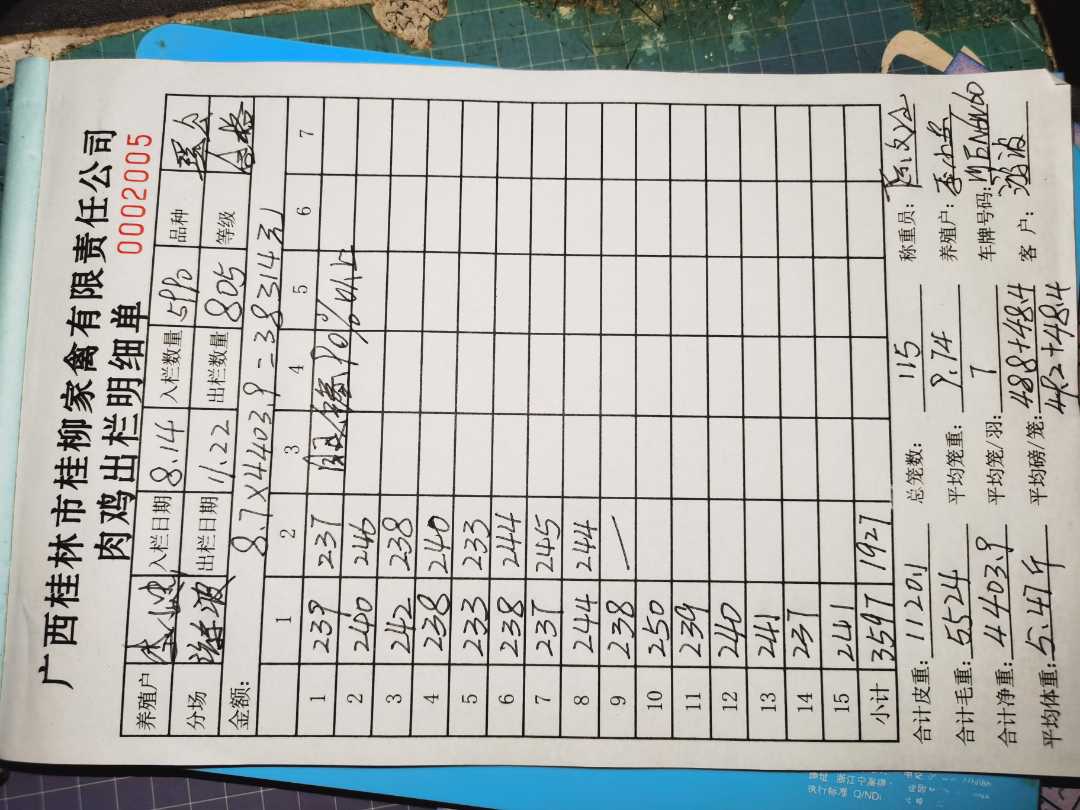 广西桂林市桂柳家禽有限责任公司
肉鸡出栏明细单 0002005
养殖户 入栏日期 8.14 入栏数量 5990 品种
分场 出栏日期 11.22 出栏数量 805 等级 合格
金额: 8.7×4403.9=38314元
1 2 3 4 5 6 7
1 239 237
2 240 246 90%以上
3 242 238
4 238 240
5 233 233
6 238 244
7 237 245
8 244 244
9 238 —
10 250
11 239
12 240
13 241
14 237
15 241
小计 3597 1927
合计皮重: 1120.1 总笼数: 115 称重员:
合计毛重: 5524 平均笼重: 9.74 养殖户:
合计净重: 4403.9 平均笼/羽: 7 车牌号码:
平均体重: 5.47斤 平均磅/笼: 488+48.4 客户:
48.2+48.4